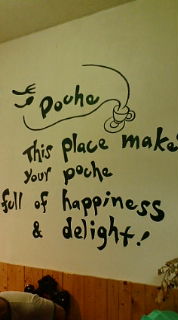 Poche
This place make
your poche
full of happiness
& delight!